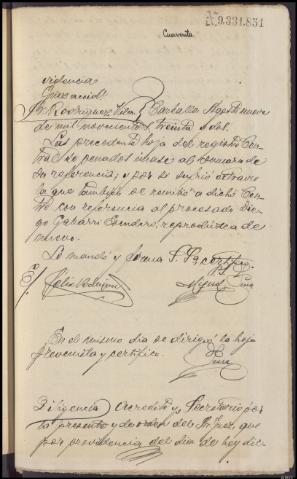 N.9.331.831
Cuarenta
Providencia
Juez accidl.
Sr. Rodriguez Carballo Agosto nueve
de mil novecientos treinta y dos.
Las precedente hoja del registro Cen-
tral de penados unase al sumario de
su referencia, y por si sufrió extravio
la que tambien se remitió a dicho Cen-
tro con referencia al procesado Die-
go Gabarri Escudero, reproduzcase de
nuevo.
Lo mandó y firma S. Sª certifico.
E/
En el mismo dia se dirigió la hoja
prevenida y certifico.
Diligencia Acredito yo Secretario por
la presente y de orden del Sr. Juez, que
por providencia del dia de hoy dic-